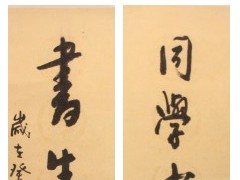 同學少
書生
歲在癸